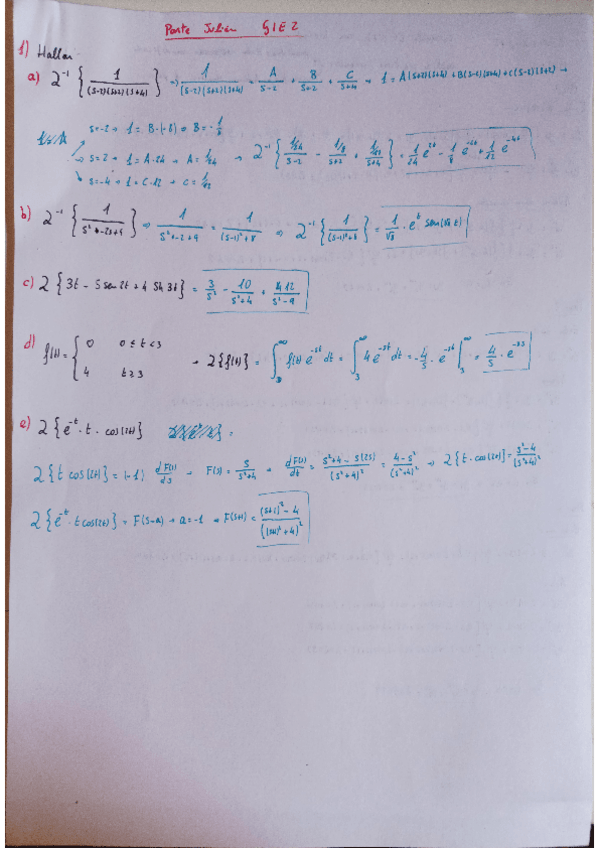 Parte Julian GIE2
1) Hallar
a) 2^{-1} { 1/((s-2)(s+2)(s+4)) } → 1/((s-2)(s+2)(s+4)) = A/(s-2) + B/(s+2) + C/(s+4) → 1 = A(s+2)(s+4) + B(s-2)(s+4) + C(s-2)(s+2) →
s=-2 → 1 = B·(-8) ⇒ B = -1/8
s=2 → 1 = A·24 → A = 1/24 → 2^{-1} { (1/24)/(s-2) - (1/8)/(s+2) + (1/12)/(s+4) } = 1/24 e^{2t} - 1/8 e^{-2t} + 1/12 e^{-4t}
s=-4 → 1 = C·12 → C = 1/12
b) 2^{-1} { 1/(s²+-2s+9) } ⇒ 1/(s²+-2+9) = 1/((s-1)²+8) ⇒ 2^{-1} { 1/((s-1)²+8) } = 1/√8 · e^t sen(√8 t)
c) 2 { 3t - 5 sen 2t + 4 Sh 3t } = 3/s² - 10/(s²+4) + 12/(s²-9)
d) f(t) = { 0 0 ≤ t < 3
4 t ≥ 3 → 2{f(t)} = ∫_0^∞ f(t) e^{-st} dt = ∫_3^∞ 4 e^{-st} dt = -4/s · e^{-st} |_3^∞ = 4/s · e^{-3s}
e) 2 { e^{-t} · t · cos(2t) } =
2 { t cos(2t) } = (-1) dF(s)/ds → F(s) = s/(s²+4) → dF(s)/dt = (s²+4 - s(2s))/(s²+4)² = (4-s²)/(s²+4)² → 2 { t · cos(2t) } = (s²-4)/(s²+4)²
2 { e^{-t} · t cos(2t) } = F(s-a) → a = -1 ⇒ F(s+1) = ((s+1)²-4)/((s+1)²+4)²